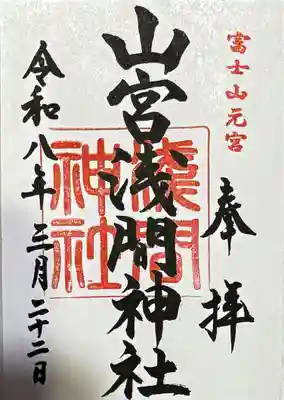 富士山元宮
奉拝
山宮浅間神社
浅間神社
令和八年三月二十二日